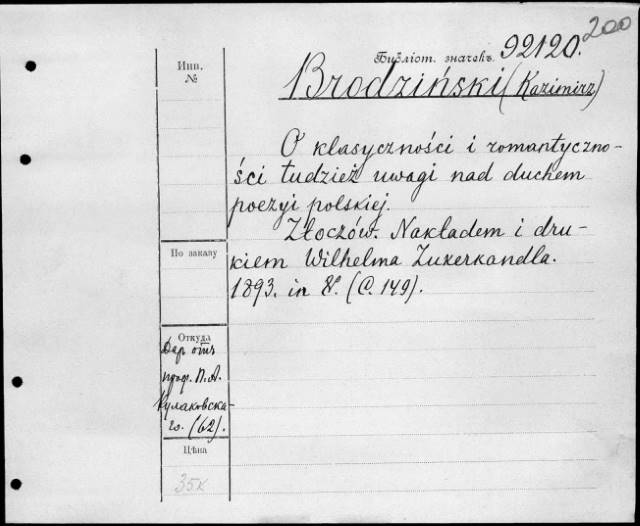 200
Библіот. значекъ. 92120.
Инв. №
Brodziński (Kazimirz)
O klasyczności i romantyczno-
ści tudzież uwagi nad duchem
poezyi polskiej.
Złoczów. Nakładem i dru-
kiem Wilhelma Zuxerkandla.
1893. in 8°. (С. 149).
По заказу
Откуда
Дар отъ
проф. П.А.
Кулаковска-
го. (62).
Цѣна
35к